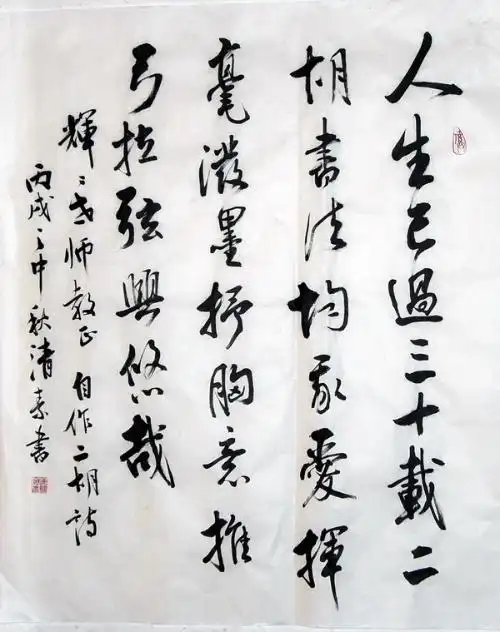 人生已過三十載二
胡書法均我愛揮
毫潑墨抒胸意推
弓拉弦興悠哉
輝〻老師教正 自作二胡詩
丙戌之中秋清素書